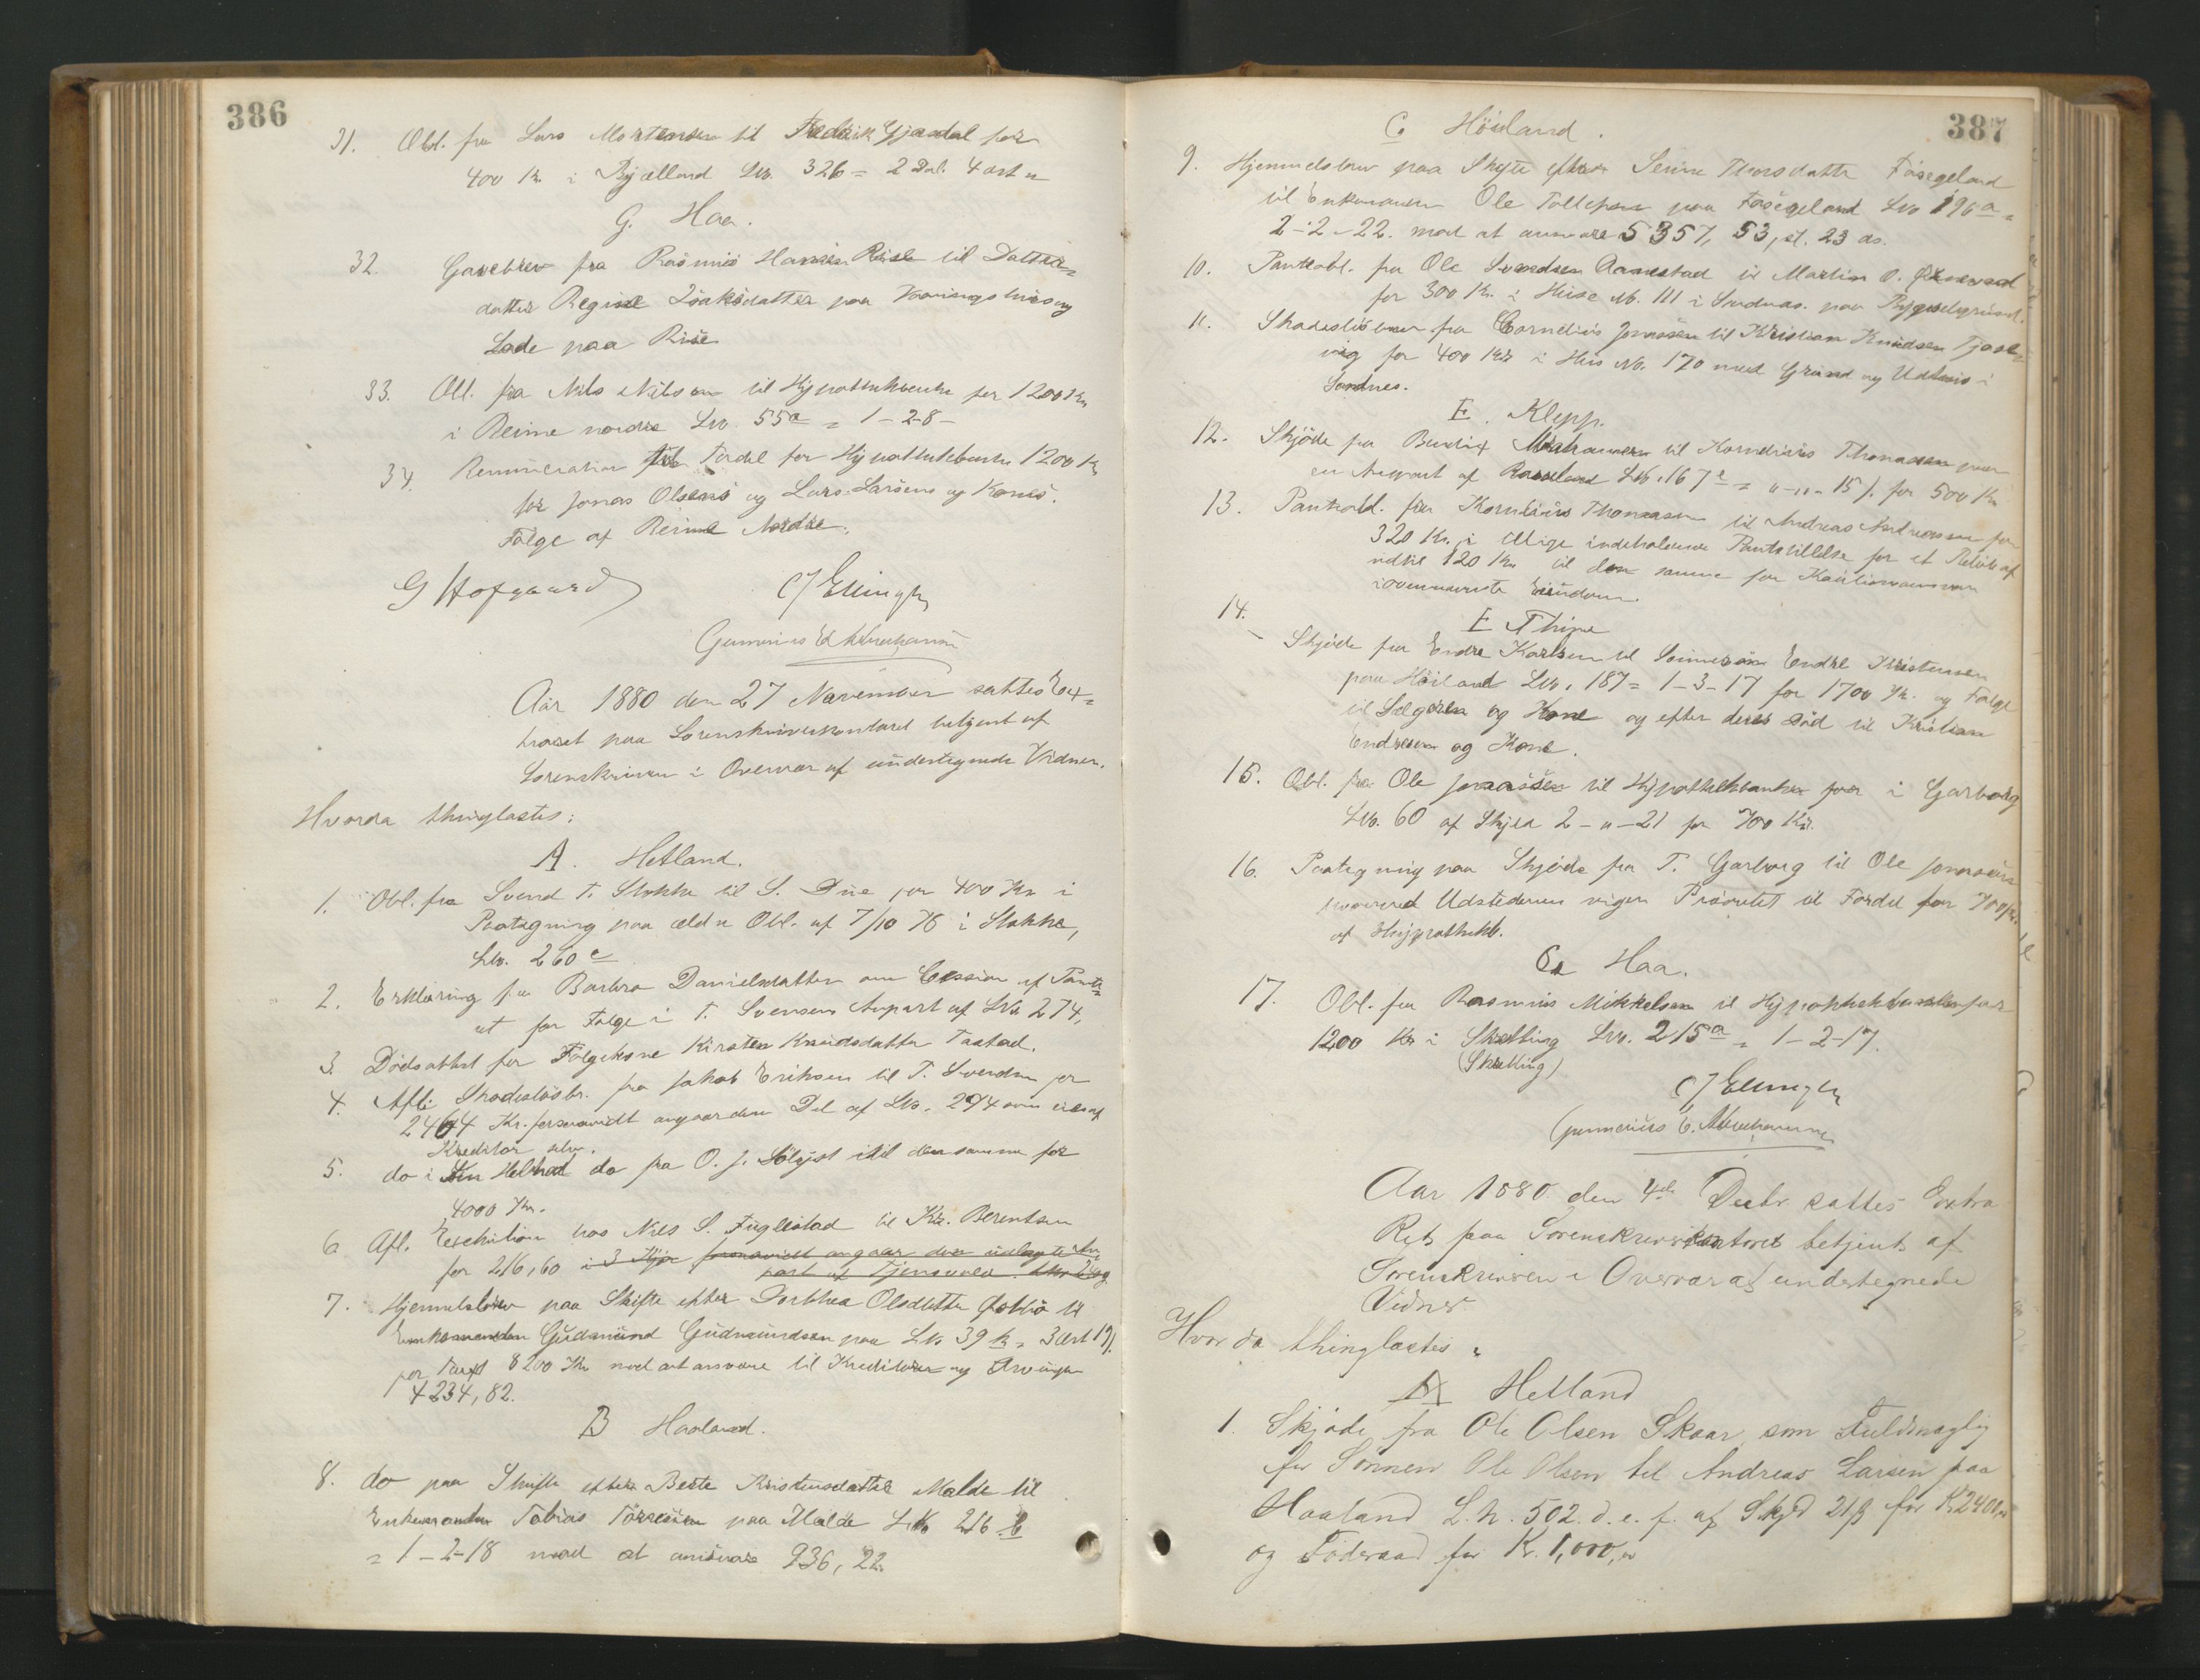 386
31. Obl. fra Lars Mortensen til Fredrik Gjesdal for
400 Kr. i Bjelland Lno. 326 = 2 Dal. 4 ort
G. Haa.
32. Gavebrev fra Rasmus Hansen Rise til Datter-
datter Regine Isaksdatter paa Vaaningshus og
Lade paa Rise
33. Obl. fra Nils Nilsen til Hypothekbanken for 1200 Kr.
i Reime nordre Lno. 55a = 1-2-8-
34. Renunciation til Fordel for Hypothekbanken 1200 Kr
for Jonas Olsens og Lars Larsens og Kones.
Følge af Reime Nordre.
G Hofgaard CJ Elling
Gunnerius E Abrahamsen
Aar 1880 den 27 November sattes Ex-
traret paa Sorenskriverkontoret betjent af
Sorenskriveren i Overvær af undertegnede Vidner.
Hvorda thinglæstes:
A. Hetland.
1. Obl. fra Svend T. Stokke til S. Due for 400 Kr i
Paategning paa ældre Obl. af 7/10 76 i Stokke,
Lno. 260c
2. Erklæring fra Barbro Danielsdatter om Cession af Pante-
ret for Følge i T. Svensens Anpart af LNo 274,
3. Dødsattest for Følgekone Kirsten Knudsdatter Tastad.
4. Afl. Skadesløsbr. fra Jakob Eriksen til T. Svendsen for
2464 Kr. forsaavidt angaar den Del af Lno. 274 som eies af
Kreditor selv.
5. do i do fra O. J. Løkjst til den samme for
4000 Kr.
6. Afl. Exekution hos Nils S. Fuglestad til Kr. Berentsen
for 216,60 i 3 Kjør forsaavidt angaar den udlagte An-
part af Tjensvold
7. Hjemmelsbrev paa Skifte efter Dorthea Olsdatter til
Enkemanden Gudmund Gudmundsen paa Lno 39 k = 3 Ort 19
for Taxt 8200 Kr mod at ansvare til Kreditorer og Arvinger
4234,82.
B Haaland.
8. do paa Skifte efter Berte Kristensdatter Malde til
Enkemanden Tobias Tørresen paa Malde LNo 216 b
= 1-2-18 mod at ansvare 936,22.
387
C Høiland.
9. Hjemmelsbrev paa Skifte efter Serine Thorsdatter Foregeland
til Enkemanden Ole Tollefsen paa Fosegeland Lno 196a =
2-2-22. mod at ansvare 5357,53, 23 as.
10. Panteobl. fra Ole Svendsen Aanestad til Martin O.
for 300 Kr. i Huse No. 111 i Sandnæs. paa Bygselgrund.
11. Skadesløsbrev fra Cornelius Jonassen til Kristian Knudsen Tjost-
for 400 Kr i Hus No. 170 med Grund og Udhuus i
Sandnes.
E. Klepp.
12. Skjøde fra Bendix til Kornelius Thomassen paa
en Anpart af LNo. 167e = "-"-15/. for 500 Kr
13. Panteobl. fra Kornelius Thomassen til Andreas Andreassen for
320 Kr. i tillige indeholdende Pantstillelse for et Beløb af
indtil 120 Kr til den samme for Kautionsansvar
i ovennævnte Eiendom.
14. E Thime
Skjøde fra Endre Karlsen til Sønnesøn Endre Kristensen
paa Høiland LNo. 187 = 1-3-17 for 1700 Kr. og Følge
til Sælgeren og Kone og efter deres Død til Kristian
Endresen og Kone.
15. Obl. fra Ole Jonassen til Hypothekbanken i Garborg
LNo. 60 af Skyld 2-"-21 for 700 Kr.
16. Paategning paa Skjøde fra T. Garborg til Ole Jonassen
hvorved Udstederen viger Prioritet til Fordel for 700 Kr.
af Hypothekb.
G Haa.
17. Obl. fra Rasmus Mikkelsen til Hypothekbanken for
1200 Kr i Sketting Lno. 215a = 1-2-17.
(Skretting)
CJ Elling
Gunnerius E. Abrahamsen
Aar 1880 den 4de Decbr sattes Extra
Ret paa Sorenskriverkontoret betjent af
Sorenskriveren i Overvær af undertegnede
Vidner
Hvor da thinglæstes:
A Hetland
1. Skjøde fra Ole Olsen Skaar som Fuldmægtig
for Sønnen Ole Olsen til Andreas Larsen paa
Haaland L.n. 502. d. e. f. af Skyld 21 β for Kr 2400,"
og Føderaad for Kr. 1,000,"